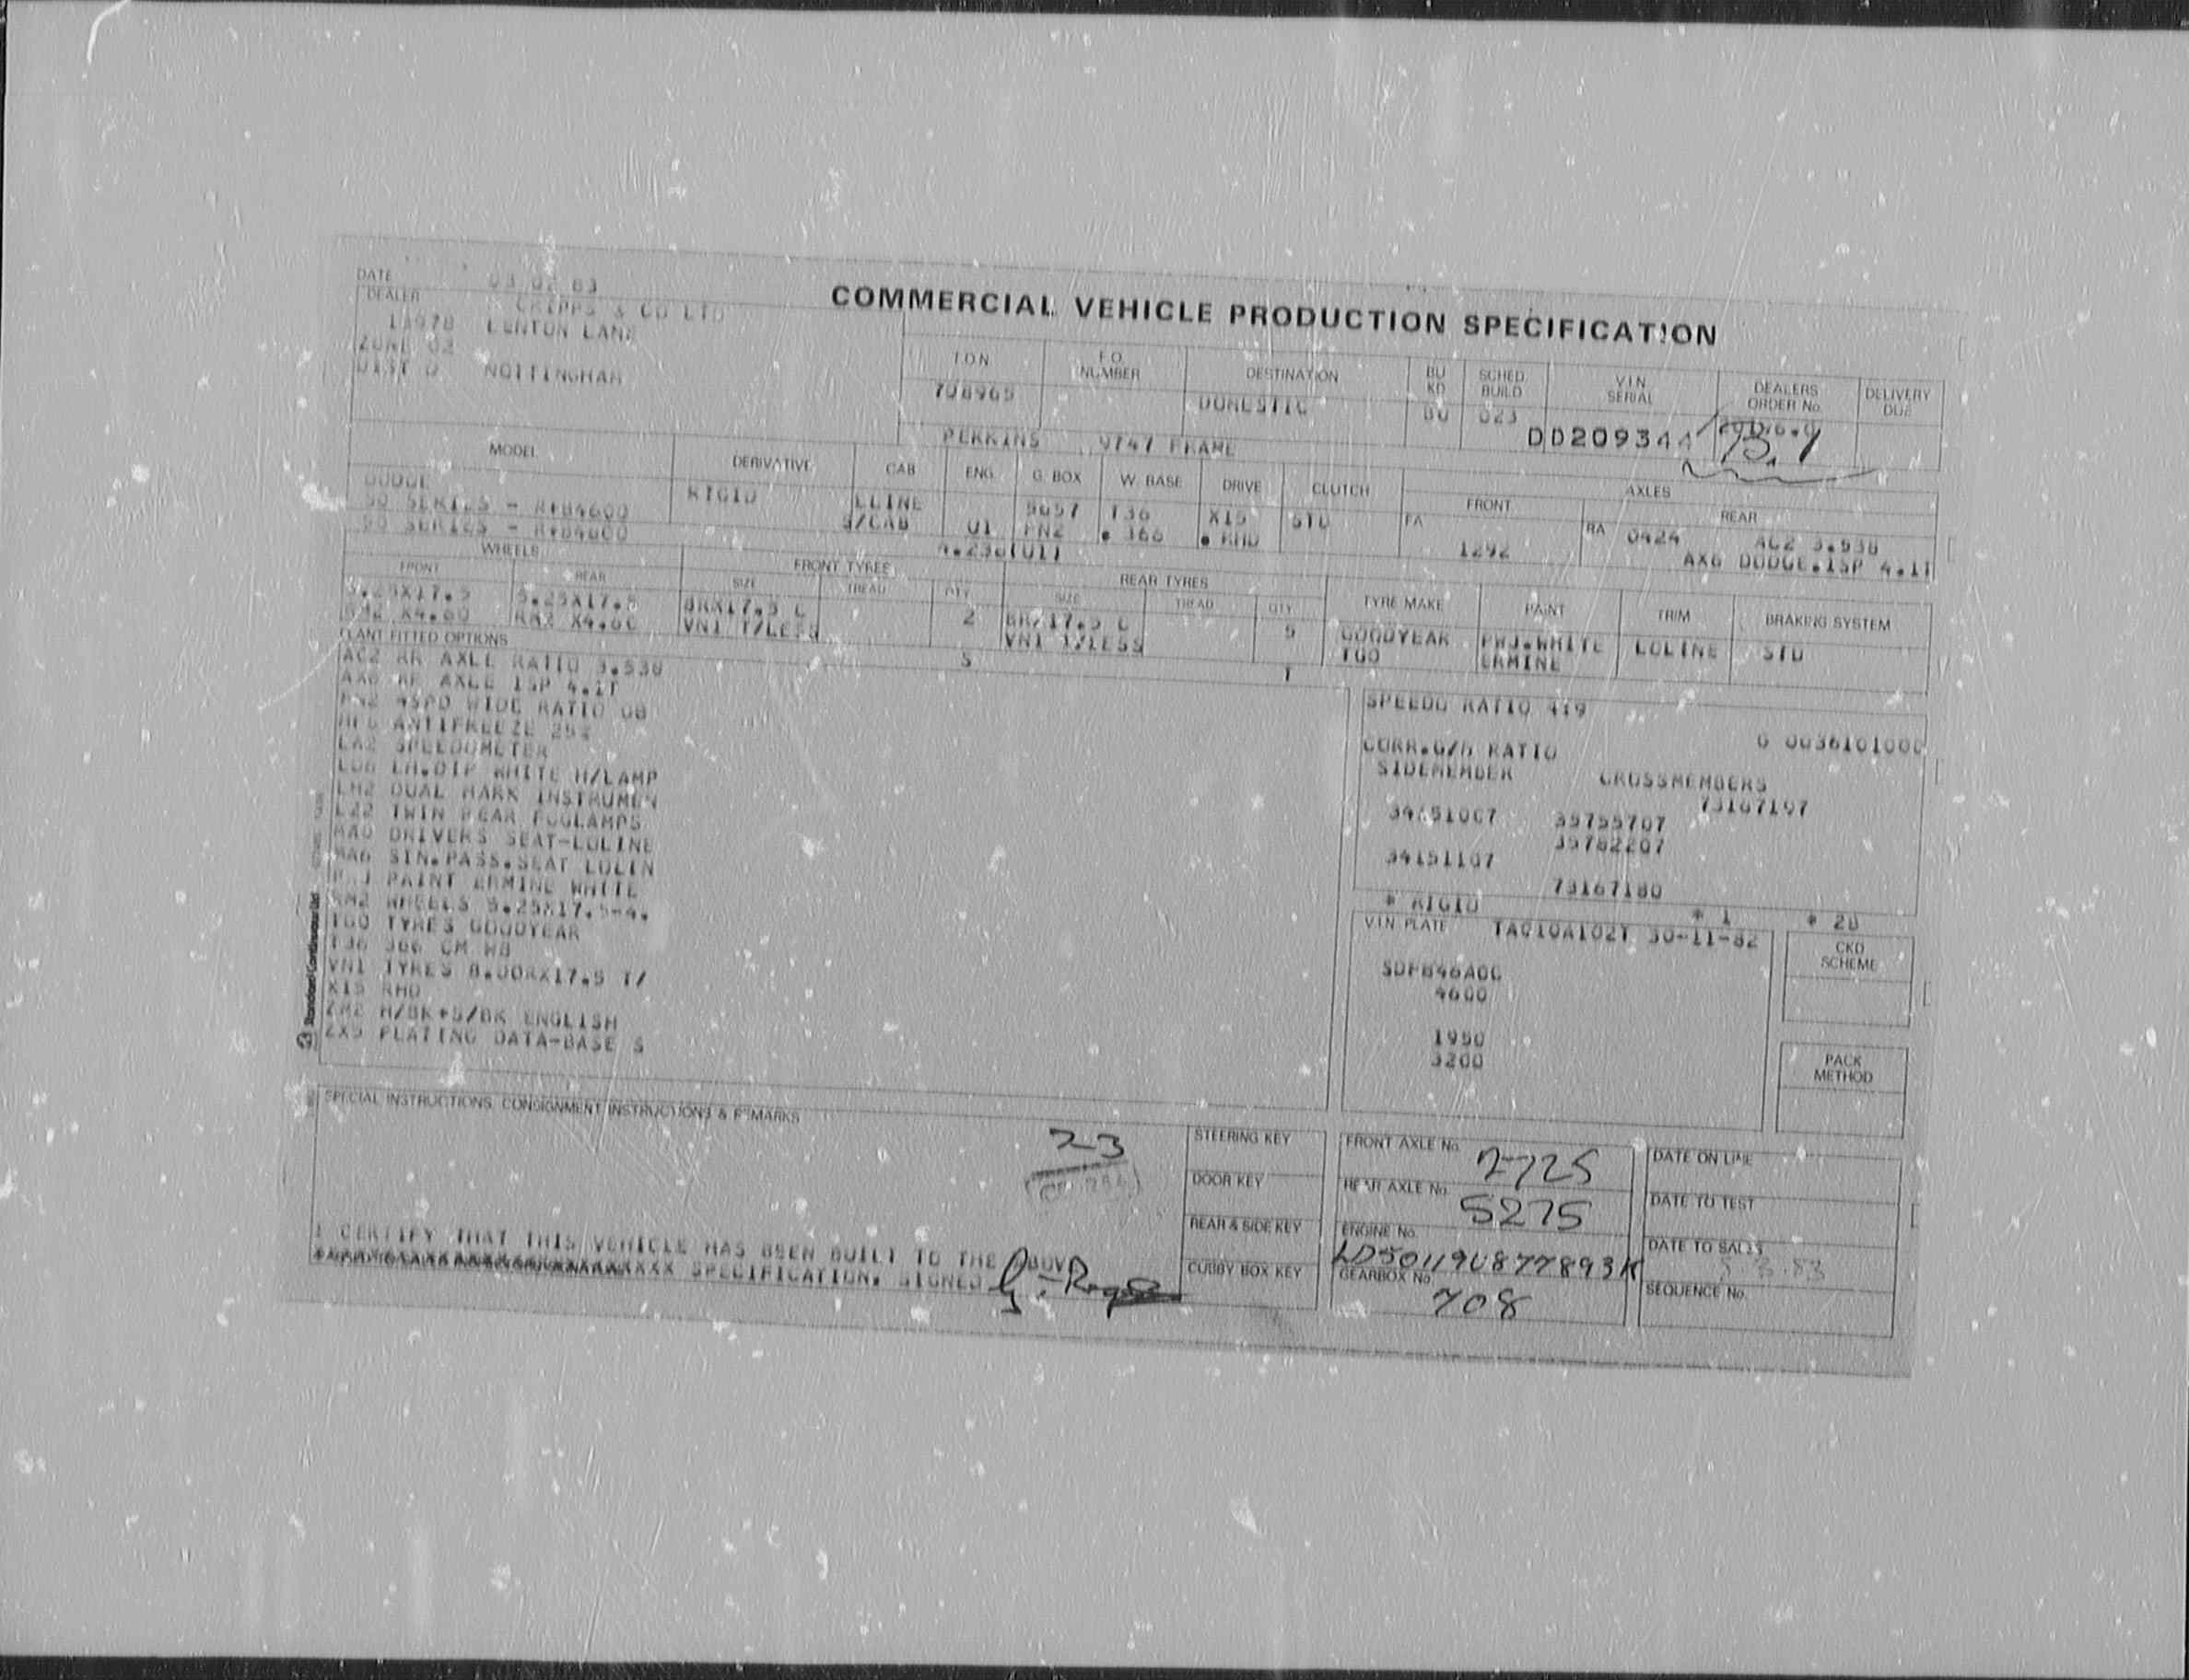 COMMERCIAL VEHICLE PRODUCTION SPECIFICATION
DATE 03 02 83
DEALER CRIPPS & CO LTD
13978 LENTON LANE
ZONE 02
DIST D NOTTINGHAM
T.O.N. F.O. NUMBER DESTINATION BU KD SCHED BUILD V.I.N. SERIAL DEALERS ORDER No. DELIVERY DUE
708965 DOMESTIC BU 023 DD209344
PERKINS 9747 FRAME
MODEL DERIVATIVE CAB ENG. G. BOX W. BASE DRIVE CLUTCH AXLES
FRONT REAR
DODGE RIGID LLINE T36 X15 STD FA RA 0424 AC2 3.538
50 SERIES - S/CAB 01 PN2 . 366 . RHD 1292 AX6 DODGE.1SP 4.1T
50 SERIES -
4.236(01)
WHEELS FRONT TYRES REAR TYRES TYRE MAKE PAINT TRIM BRAKING SYSTEM
FRONT REAR SIZE TREAD QTY SIZE TREAD QTY
5.25X17.5 5.25X17.5 8RX17.5 C 2 8RX17.5 C 5 GOODYEAR PWJ.WHITE LOLINE STD
RM2 X4.60 RM2 X4.60 VN1 T/LESS VN1 T/LESS TGO ERMINE
S T
PLANT FITTED OPTIONS
AC2 RR AXLE RATIO 3.538
AX6 RR AXLE 1SP 4.1T
PN2 4SPD WIDE RATIO GB
ANTIFREEZE 25%
LA2 SPEEDOMETER
LD6 LH.DIP WHITE H/LAMP
LH2 DUAL MARK INSTRUMEN
LZ2 TWIN REAR FOGLAMPS
MAO DRIVERS SEAT-LOLINE
MA6 SIN.PASS.SEAT LOLIN
PWJ PAINT ERMINE WHITE
RM2 WHEELS 5.25X17.5-4.
TGO TYRES GOODYEAR
T36 366 CM WB
VN1 TYRES 8.00RX17.5 T/
X15 RHD
ZM2 H/BK+S/BK ENGLISH
ZX5 PLATING DATA-BASE S
SPEEDO RATIO
CORR.G/B RATIO G 0036101000
SIDEMEMBER CROSSMEMBERS
73167197
34151067 35755707
35782207
34151167
73167180
* RIGID * 1 * 28
V.I.N. PLATE TAG10A102Y 30-11-82
CKD SCHEME
4600
1950
3200
PACK METHOD
SPECIAL INSTRUCTIONS, CONSIGNMENT INSTRUCTIONS & REMARKS
23
STEERING KEY FRONT AXLE No. 2725 DATE ON LINE
DOOR KEY REAR AXLE No. 5275 DATE TO TEST
REAR & SIDE KEY ENGINE No. LD50119U877893K DATE TO SALES
CUBBY BOX KEY GEARBOX No. 708 SEQUENCE No.
I CERTIFY THAT THIS VEHICLE HAS BEEN BUILT TO THE ABOVE
SPECIFICATION. SIGNED
Standard Continuous Ltd